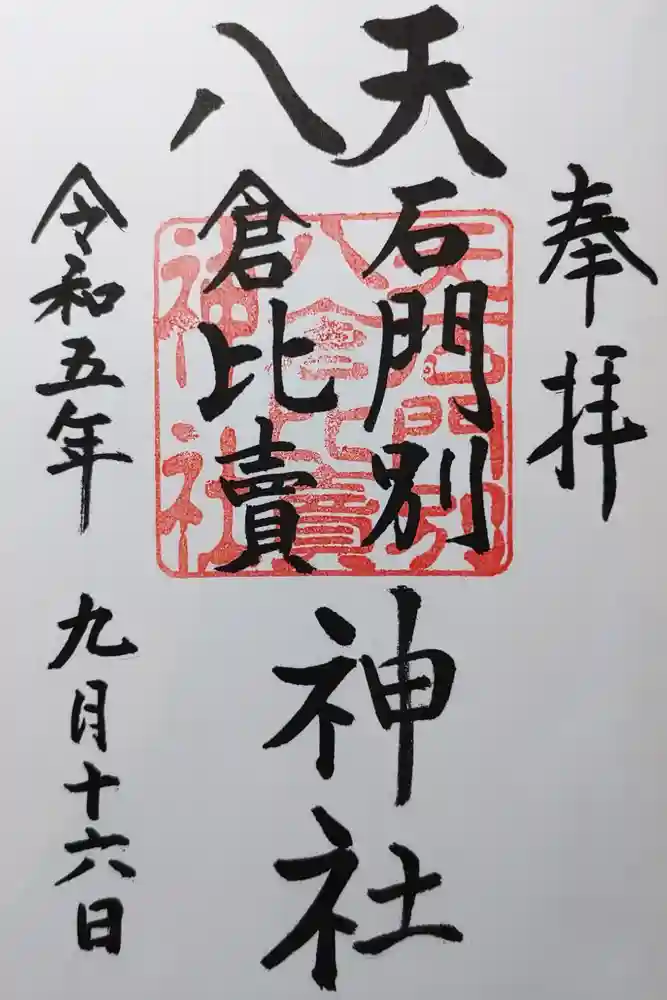 奉拝
天石門別
八倉比賣
神社
令和五年 九月十六日
天石門別
八倉比賣
神社